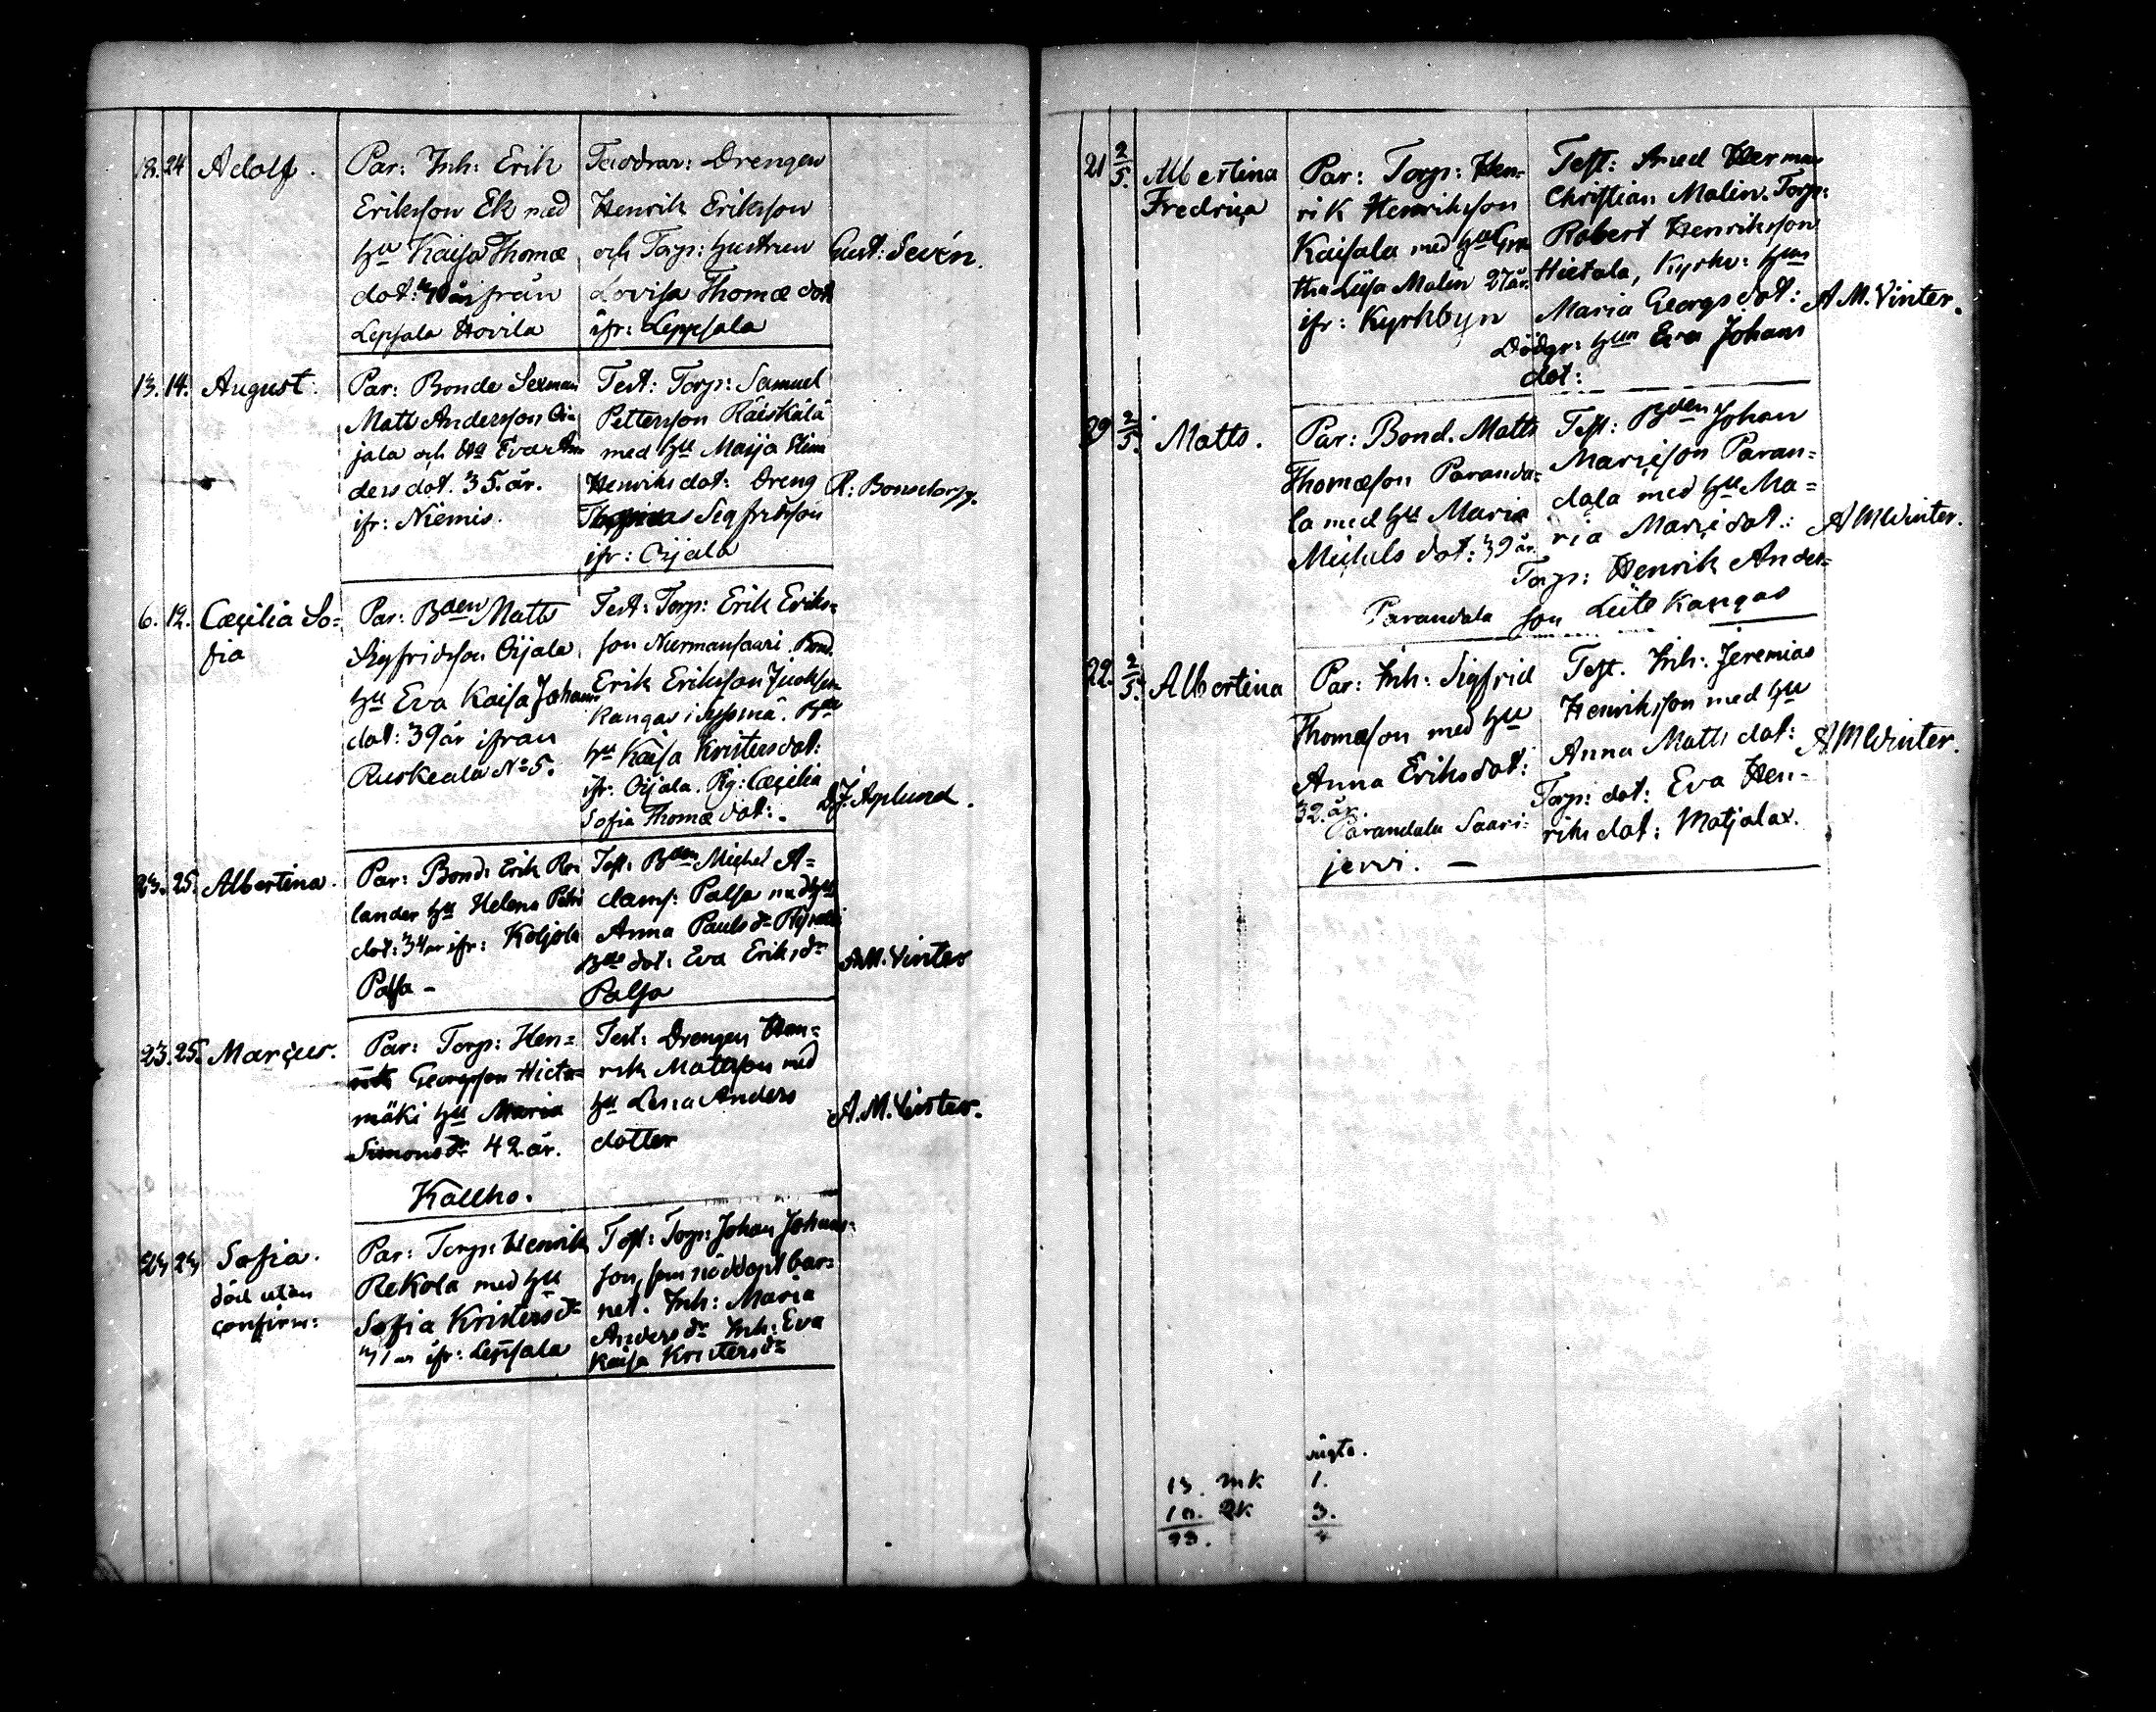 18. 24 Adolf.
Par: Inh: Erik
Eriksson Ek med
hu Kaisa Thomæ
dot: 40 år från
Lepsala Hovila
Faddrar: Drengen
Henrik Eriksson
och Torp: hustrun
Lovisa Thomæ dot
ifr: Leppsala
Gust: Sevén.
13. 14. August.
Par: Bonde Sexman
Matts Andersson Oi
jala och Ha Eva An
ders dot. 35. år.
ifr: Niemis.
Test: Torp: Samuel
Pettersson Räiskälä
med hu Maija
Henriks dot: Dreng
Sigfridsson
ifr: Oijala
R: Bonsdorff.
6. 12. Cæcilia So=
fia
Par: Bden Matts
Sigfridsson Oijala,
hu Eva Kaisa Johans
dot: 39 år ifran
Ruskeala No 5.
Test: Torp: Erik Eriks=
son Nurmansaari. Bond.
Erik Eriksson
kangas i
hu Kaisa Kristersdot:
ifr: Oijala. Pig: Cæcilia
Sofia Thomæ dot:.
D.J. Asplund.
23. 25. Albertina.
Par: Bond: Erik Ro
lander hu Helena Petri
dot: 34 år ifr: Koljola
Palsa –
Test: Bden Michel A=
damss: Palsa med hu
Anna Pauls dr
Bde dot: Eva Eriks dr
Palsa
A.M. Vinter
23. 25. Marcus.
Par: Torp: Hen=
rik Georgsson Hieta=
mäki hu Maria
Simons dr 42 år.
Kallho.
Test: Drengen Hen=
rik Mattsson med
hu Lena Anders
dotter
A.M. Vinter.
24 24 Sofia.
död utan
confirm:
Par: Torp: Henrik
Rekola med hu
Sofia Kristers dr
41 år ifr: Lepsala
Test: Torp: Johan Johans=
son, som nöddöpt bar=
net. Inh: Maria
Anders dr Inh: Eva
Kaisa Kristers dr
21 2/5. Albertina
Fredrica
Par: Torp: Hen=
rik Henriksson
Kaisala med hu Gre
tha Lisa Malin 27 år.
ifr: Kyrkbyn
Test: Smed Herman
Christian Malin. Torp:
Robert Henriksson
Hietala, Kyrkv: hun
Maria Georgs dot:
Dödgr: hun Eva Johans
dot:
A M. Vinter.
29 2/5. Matts.
Par: Bond. Matts
Thomasson Paranda=
la med hu Maria
Michels dot: 39 år
Parandala
Test: Bden Johan
Maricson Paran=
dala med hu Ma=
ria Mari dot.:
Torp: Henrik Anders=
son Leite Kangas
A M Winter.
22. 2/5. Albertina
Par: Inh: Sigfrid
Thomasson med hu
Anna Eriksdot:
32. år.
Parandala Saari=
jervi. –
Test. Inh: Jeremias
Henriksson med hu
Anna Matts dot:
Torp: dot: Eva Hen-
riks dot: Matjalax.
A M Winter.
ägta.
13. mk 1.
10. qk 3.
23. 4